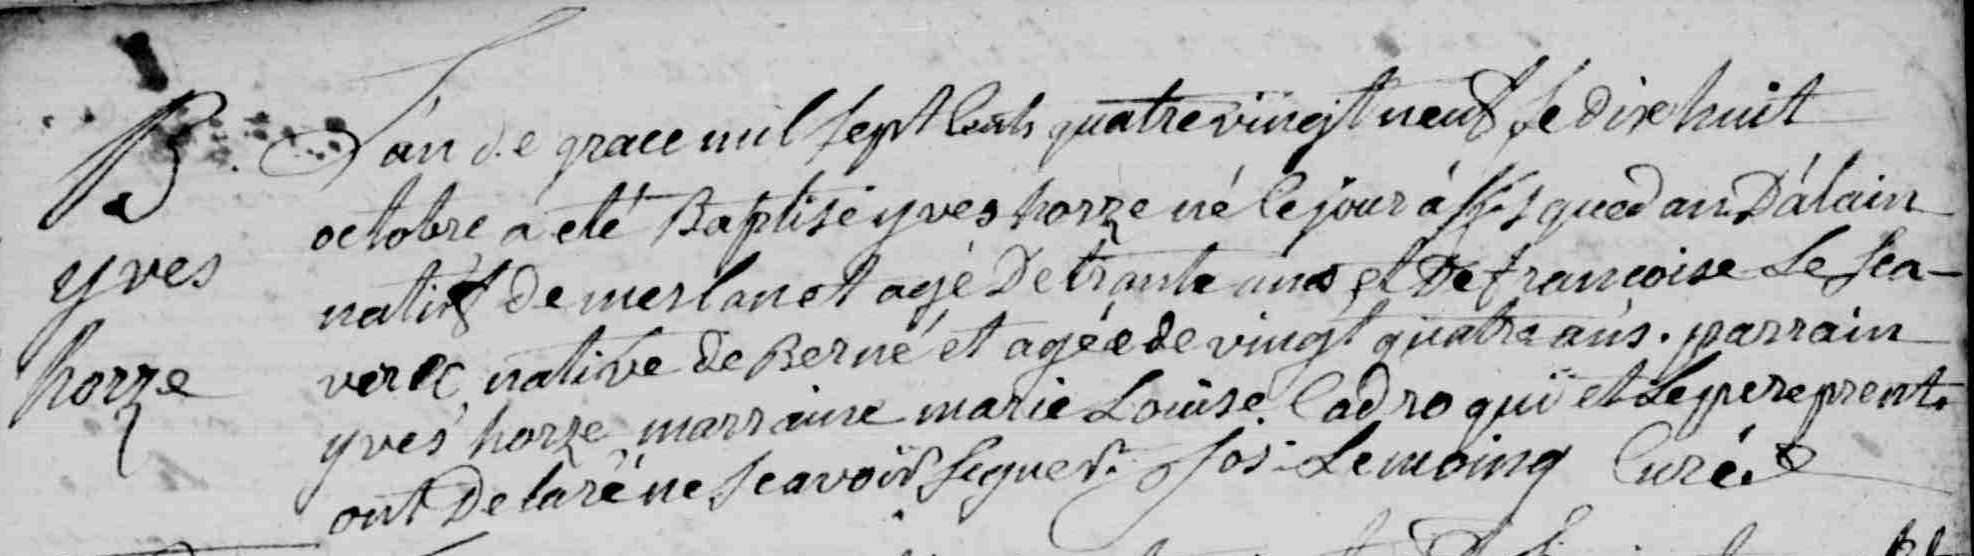 B.
yves
horre
L'an de grace mil sept cents quatre vingt neuf, le dix huit
octobre a eté Baptisé yves horre né ce jour á D'alain
natif de merlan et agé De trante ans et De francoise Le sca-
verec native de Berné et agée de vingt quatre ans. parrain
yves horre marraine marie Louise Cadro qui et le pere prent.
ont Declaré ne scavoir signer. Jos: Le moing Curé